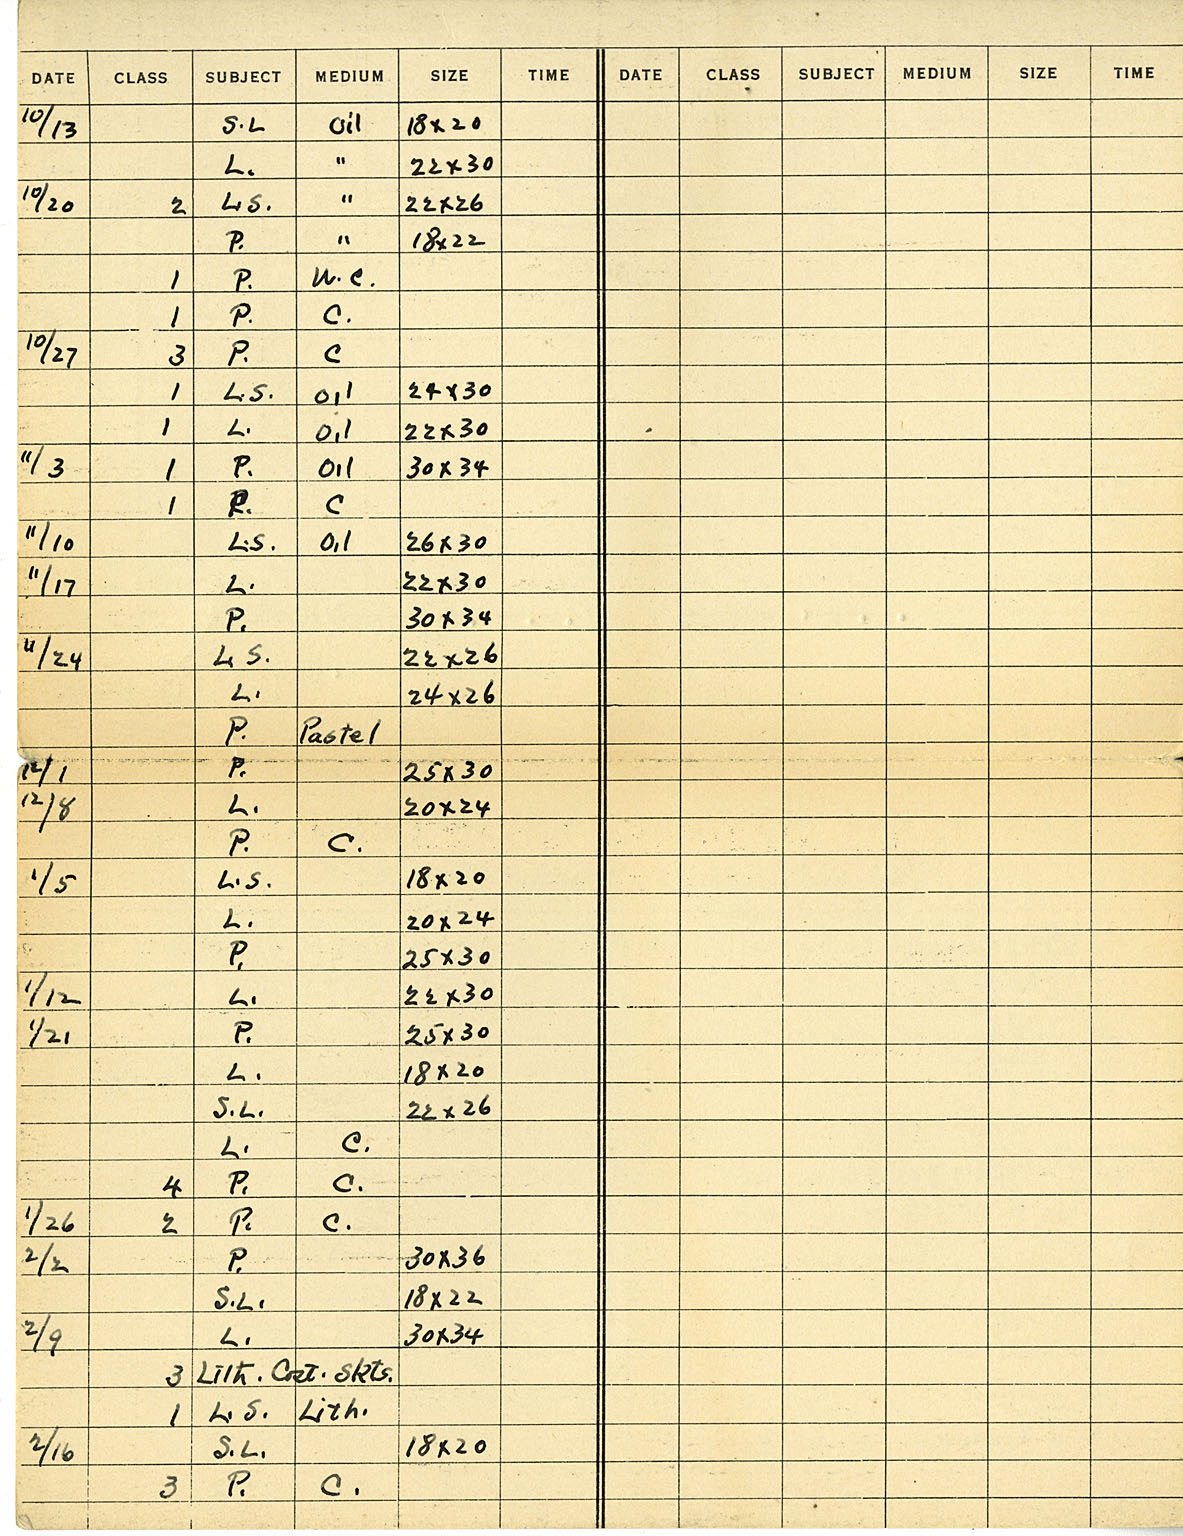 DATE CLASS SUBJECT MEDIUM SIZE TIME DATE CLASS SUBJECT MEDIUM SIZE TIME
10/13 S.L Oil 18x20
L. " 22x30
10/20 2 L.S. " 22x26
P. " 18x22
1 P. W.C.
1 P. C.
10/27 3 P. C
1 L.S. Oil 24x30
1 L. Oil 22x30
11/3 1 P. Oil 30x34
1 P. C
11/10 L.S. Oil 26x30
11/17 L. 22x30
P. 30x34
11/24 L.S. 22x26
L. 24x26
P. Pastel
12/1 P. 25x30
12/8 L. 20x24
P. C.
1/5 L.S. 18x20
L. 20x24
P. 25x30
1/12 L. 22x30
1/21 P. 25x30
L. 18x20
S.L. 22x26
L. C.
4 P. C.
1/26 2 P. C.
2/2 P. 30x36
S.L. 18x22
2/9 L. 30x34
3 Lith. Skts.
1 L.S. Lith.
2/16 S.L. 18x20
3 P. C.